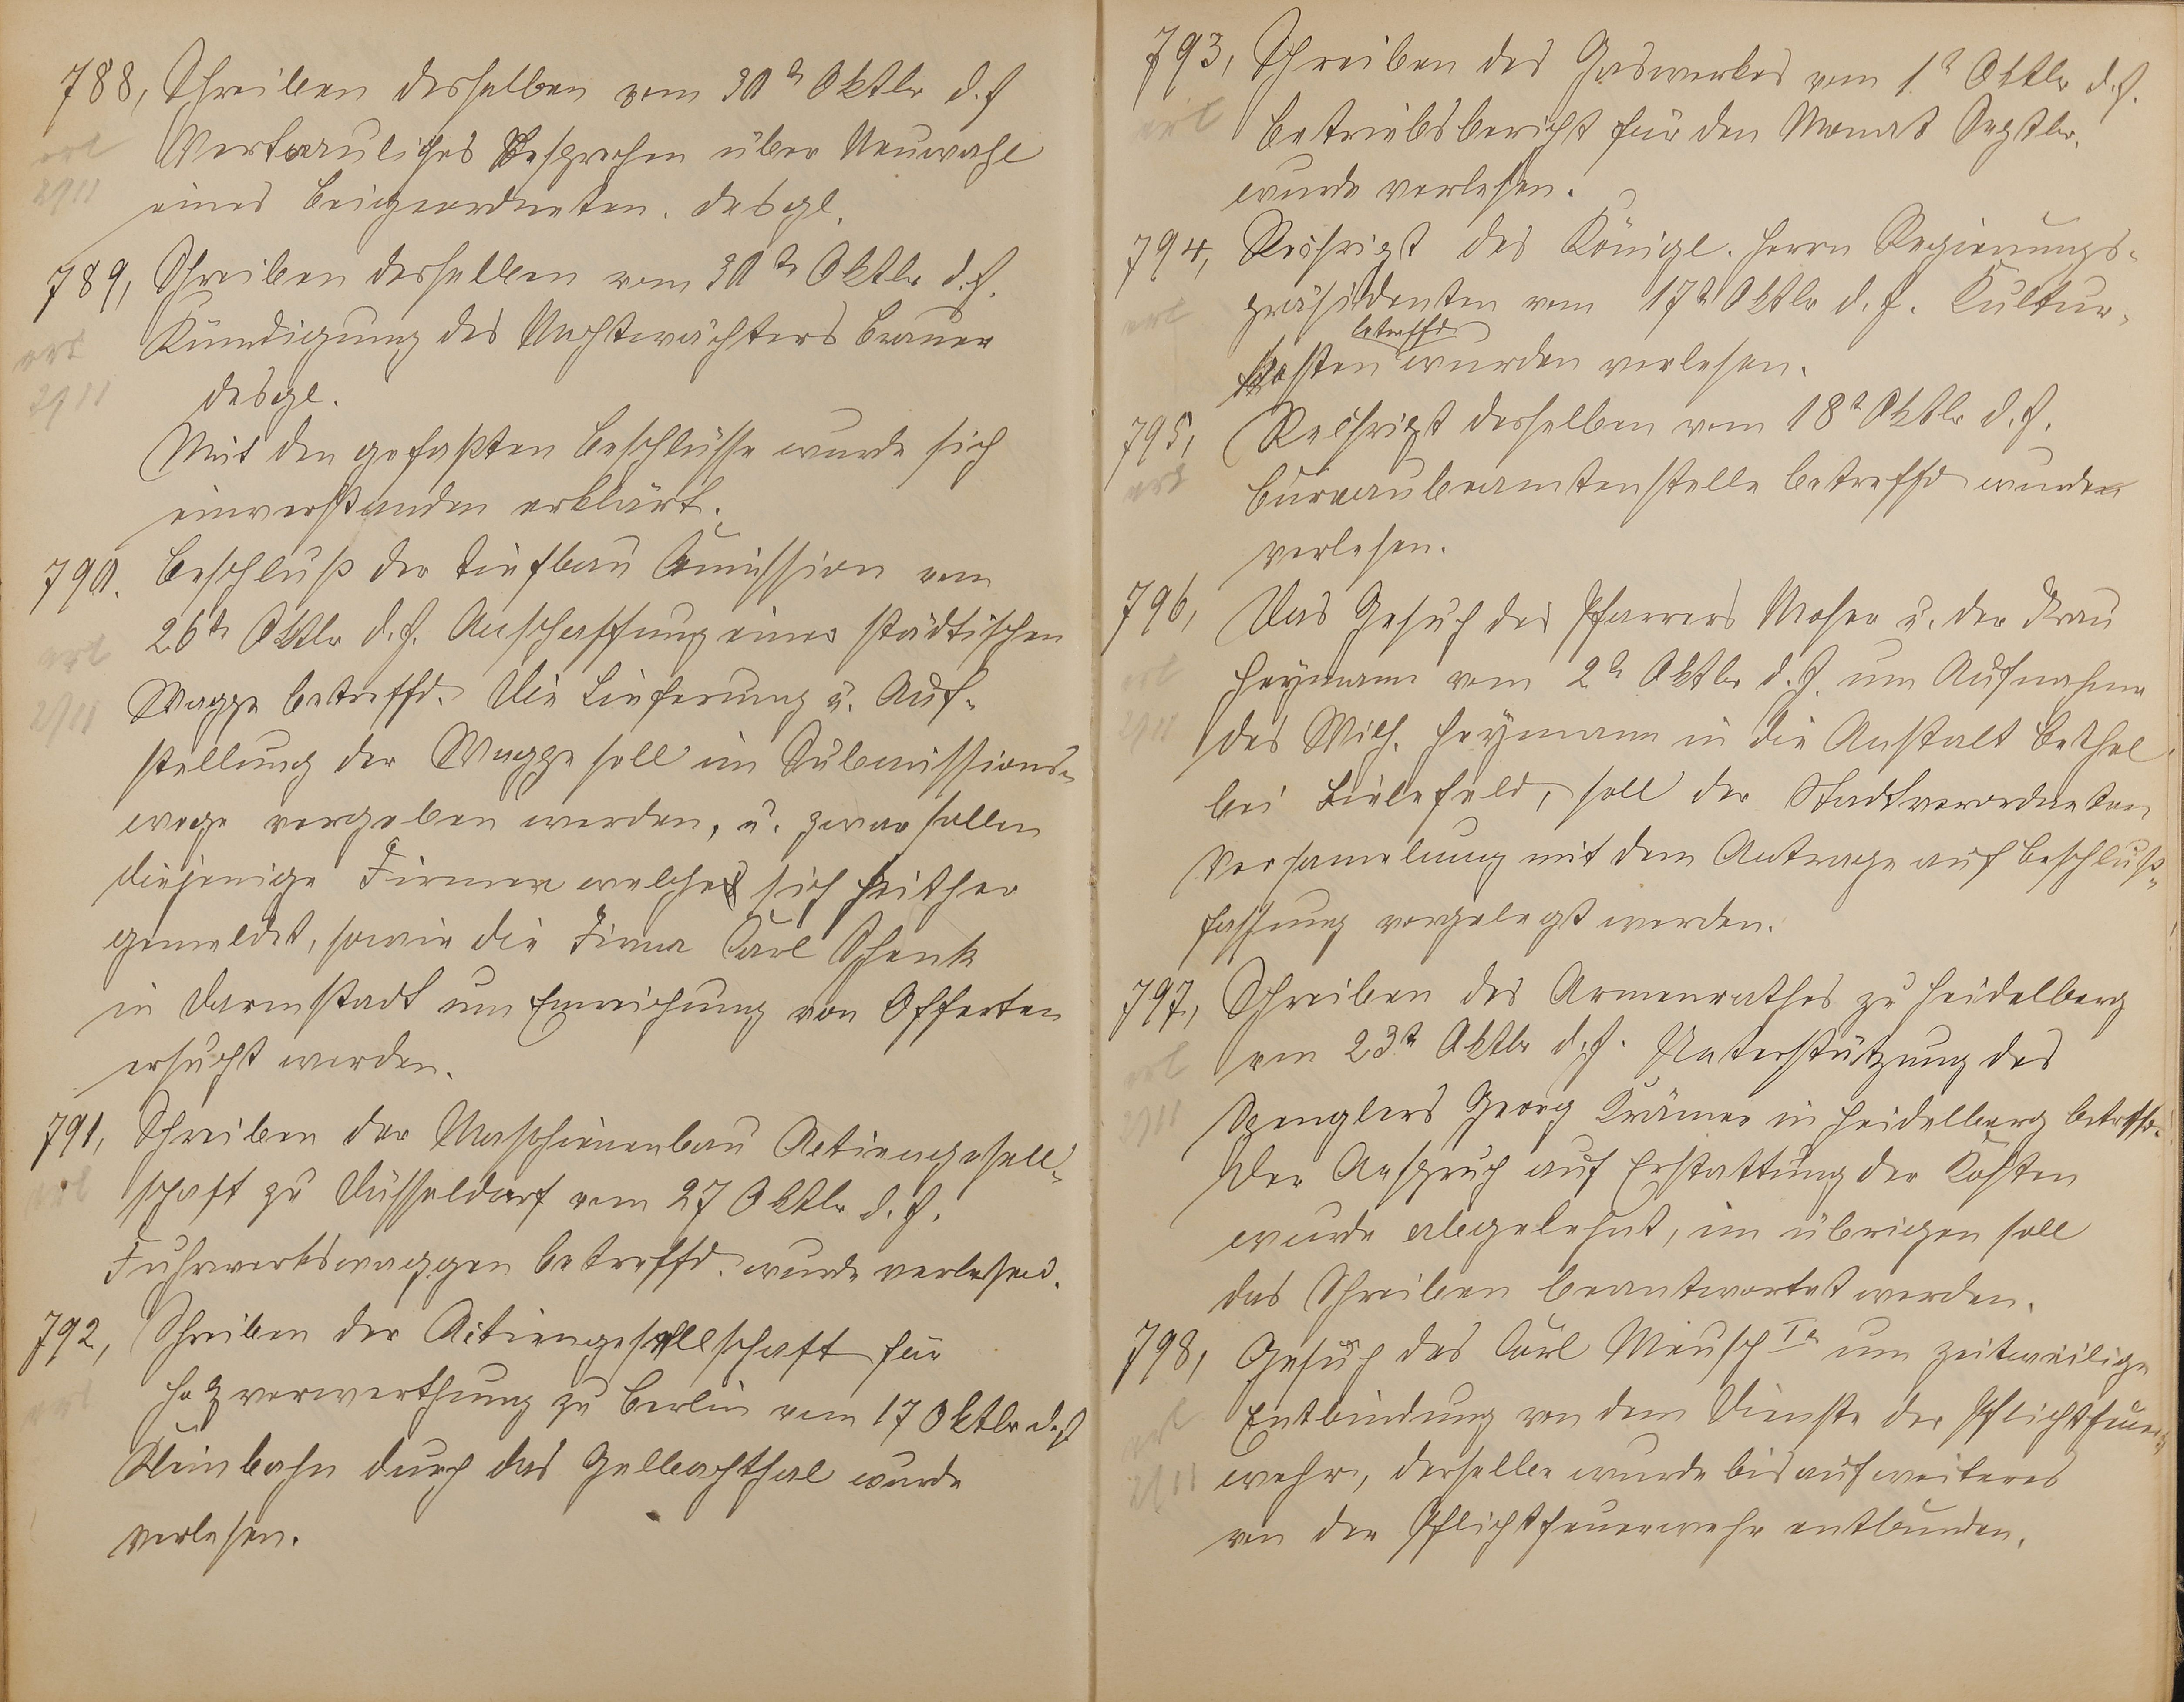 788, Schreiben desselben vom 30t Oktbr d. J
Vertrauliches Besprechen über Neuwahl
erl
2/11
eines Beigeordneten. desgl.
789, Schreiben desselben vom 30t Oktbr d. J.
Kündigung des Nachtwächters Brauer
erl
2/11
desgl.
Mit den gefaßten Beschlüsse wurde sich
einverstanden erklärt.
790. Beschluß der Tiefbau Comission vom
26t Oktbr d. J. Anschaffung einer städtischen
erl
Wagge betreffd. Die Lieferung u. Auf-
2/11
stellung der Wagge soll im Submissions-
wege vergeben werden, u. zwar sollen
diejenige Firmen welche sich seither
gemeldet, sowie die Firma Carl Schenk
in Darmstadt um Einreichung von Offerten
ersucht werden.
791, Schreiben der Maschienenbau Actiengesell-
erl
schaft zu Düsseldorf vom 27 Oktbr d. J.
Fuhrwerkswaggen betreffd. wurde verlesen.
792, Schreiben der Actiengesellschaft für
erl
Holzverwerthung zu Berlin vom 17 Oktbr d. J
Kleinbahn durch das Gelbachthal wurde
verlesen.
793, Schreiben des Gaswerkes vom 1t Oktbr d. J.
erl
Betriebsbericht für den Monat Septbr.
wurde verlesen.
794, Reskript des Königl. Herrn Regierungs-
erl
präsidenten vom 17t Oktbr d. J. Kultur-
betreffd
kosten wurden verlesen.
795, Reskript desselben vom 18t Oktbr d. J.
erl
Büreaubeamtenstelle betreffd wurden
verlesen.
796, Das Gesuch des Pfarrers Moser u. der Frau
erl
Heymann vom 2t Oktbr d. J. um Aufnahme
2/11
des Wilh. Heymann in die Anstalt Bethel
bei Bielefeld, soll der Stadtverordneten
Versamelung mit dem Antrage auf Beschluß-
fassung vorgelegt werden.
797, Schreiben des Armenrathes zu Heidelberg
erl
vom 23t Oktbr d. J. Unterstützung des
2/11
Spenglers Georg Krämer in Heidelberg betreffd.
Der Anspruch auf Erstattung der Kosten
wurde abgelehnt, im übrigen soll
das Schreiben beantwortet werden.
798, Gesuch des Carl Meusch Ir um zeitweilige
erl
Entbindung von dem Dienste der Pflichtfeuer-
2/11
wehr, derselbe wurde bis auf weiteres
von der Pflichtfeuerwehr entbunden.